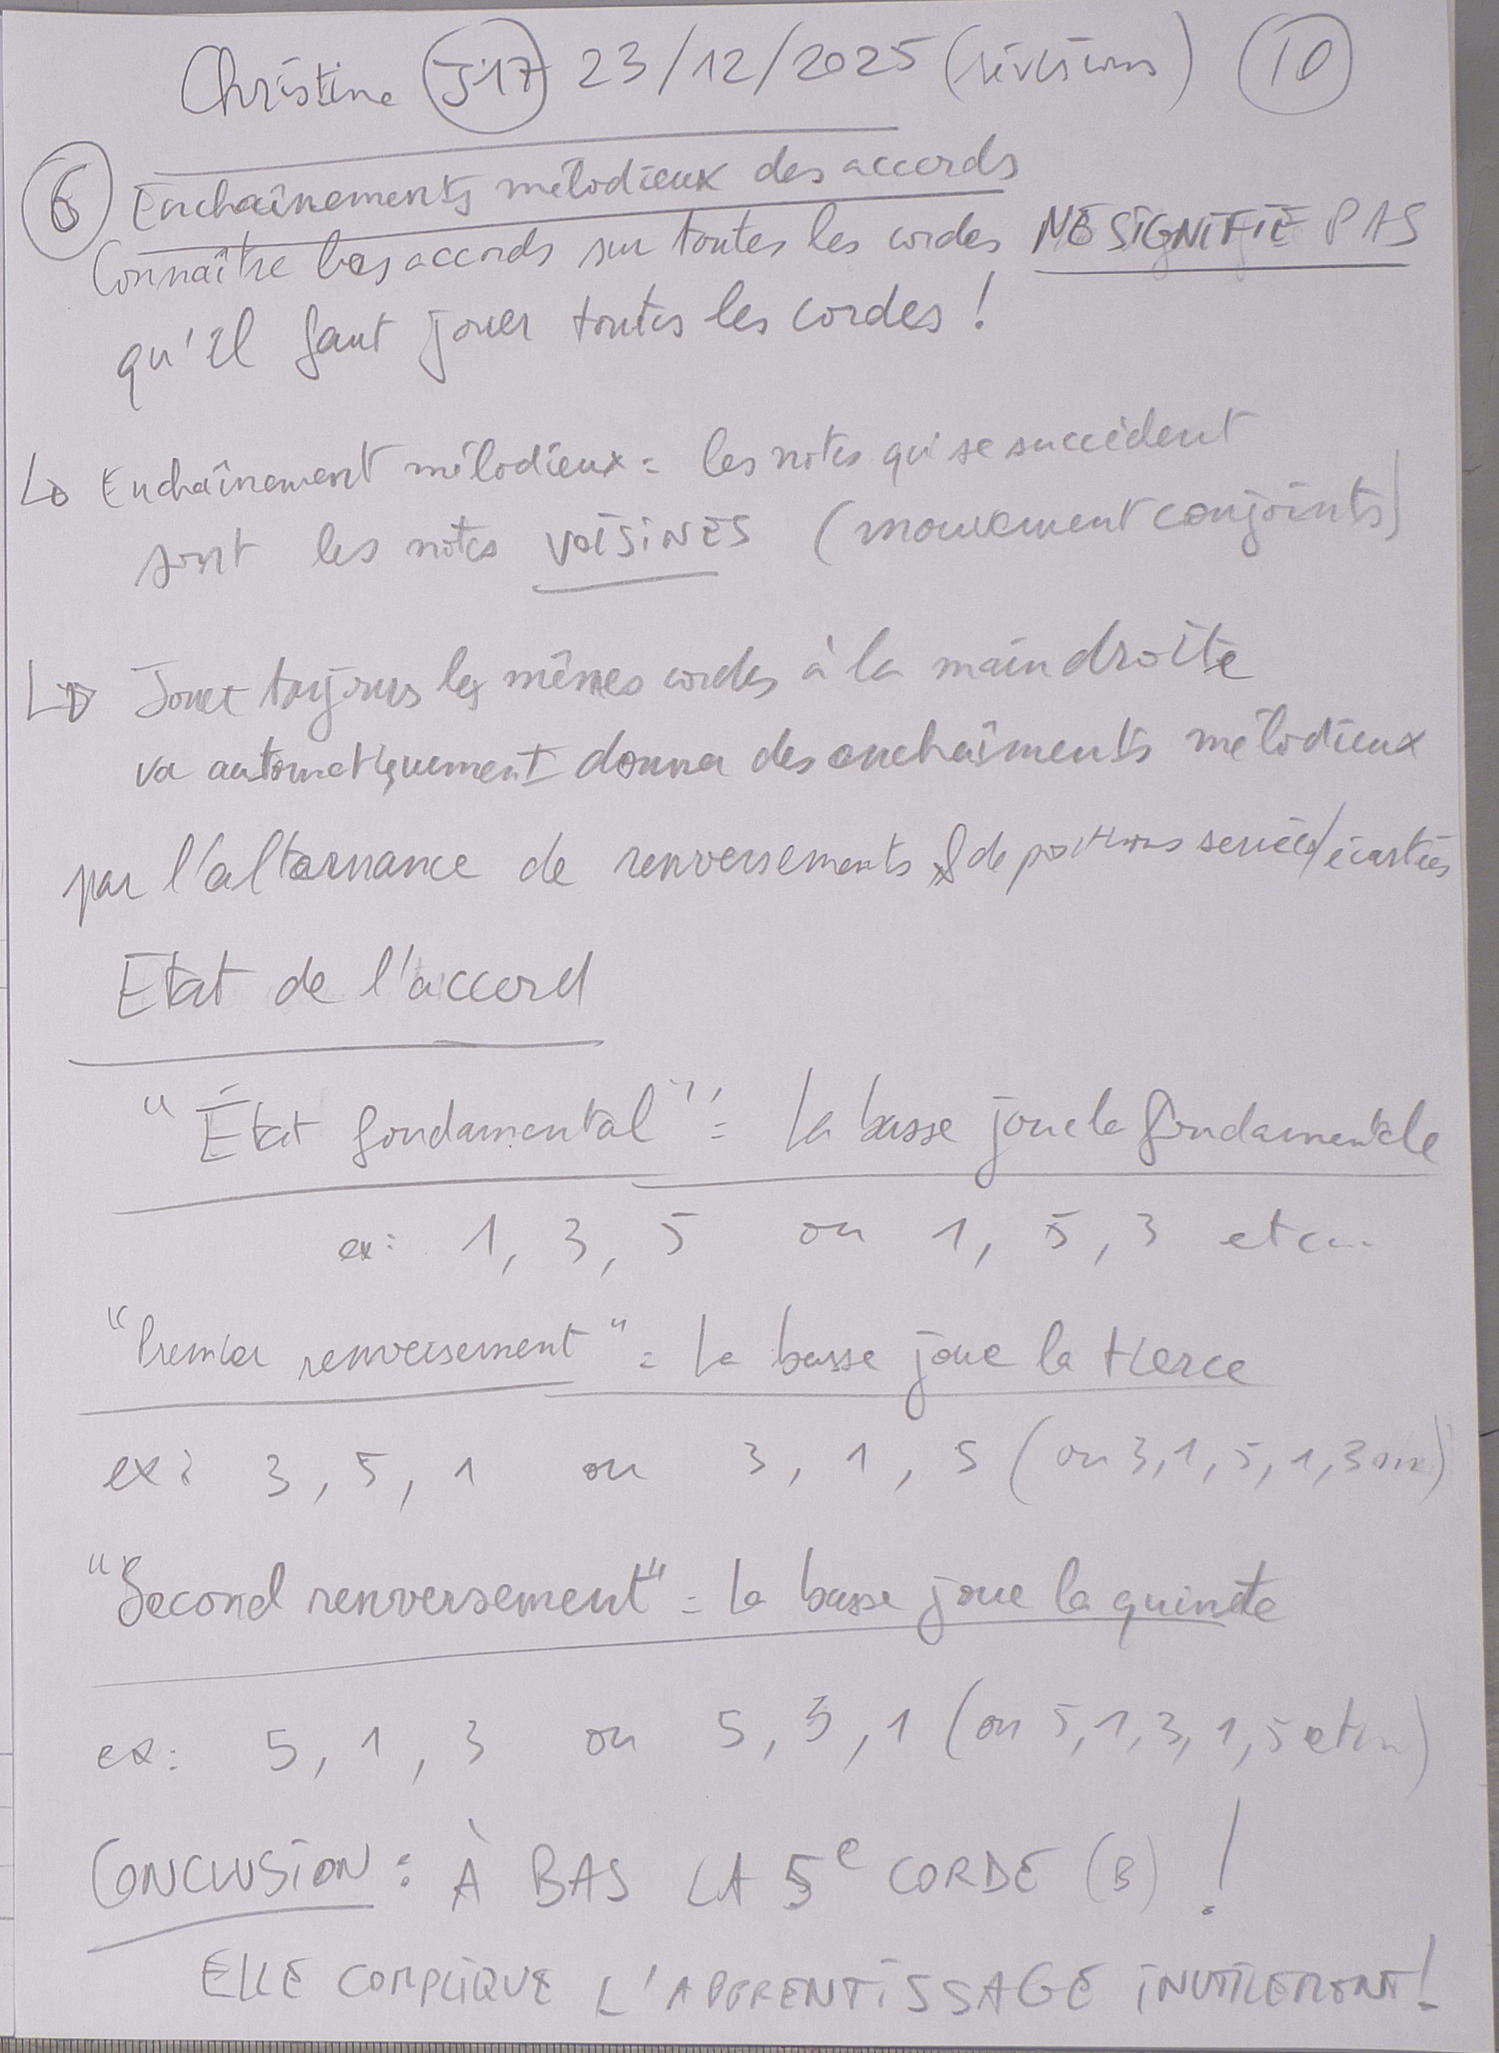 Christine J17 23/12/2025 (révisions) 10
6 Enchaînements mélodieux des accords
Connaître les accords sur toutes les cordes NE SIGNIFIE PAS
qu'il faut jouer toutes les cordes !
↳ Enchaînement mélodieux = les notes qui se succèdent
sont les notes VOISINES (mouvement conjoints)
↳ Jouer toujours les mêmes cordes à la main droite
va automatiquement donner des enchaîments mélodieux
par l'alternance de renversements & de positions serrées/écartées
Etat de l'accord
"État fondamental" = la basse joue la fondamentale
ex: 1, 3, 5 ou 1, 5, 3 etc...
"Premier renversement" = la basse joue la tierce
ex: 3, 5, 1 ou 3, 1, 5 (ou 3, 1, 5, 1, 3 )
"Second renversement" = la basse joue la quinte
ex: 5, 1, 3 ou 5, 3, 1 (ou 5, 1, 3, 1, 5 etc...)
CONCLUSION : À BAS LA 5e CORDE (B) !
ELLE COMPLIQUE L'APPRENTISSAGE INUTILEMENT !